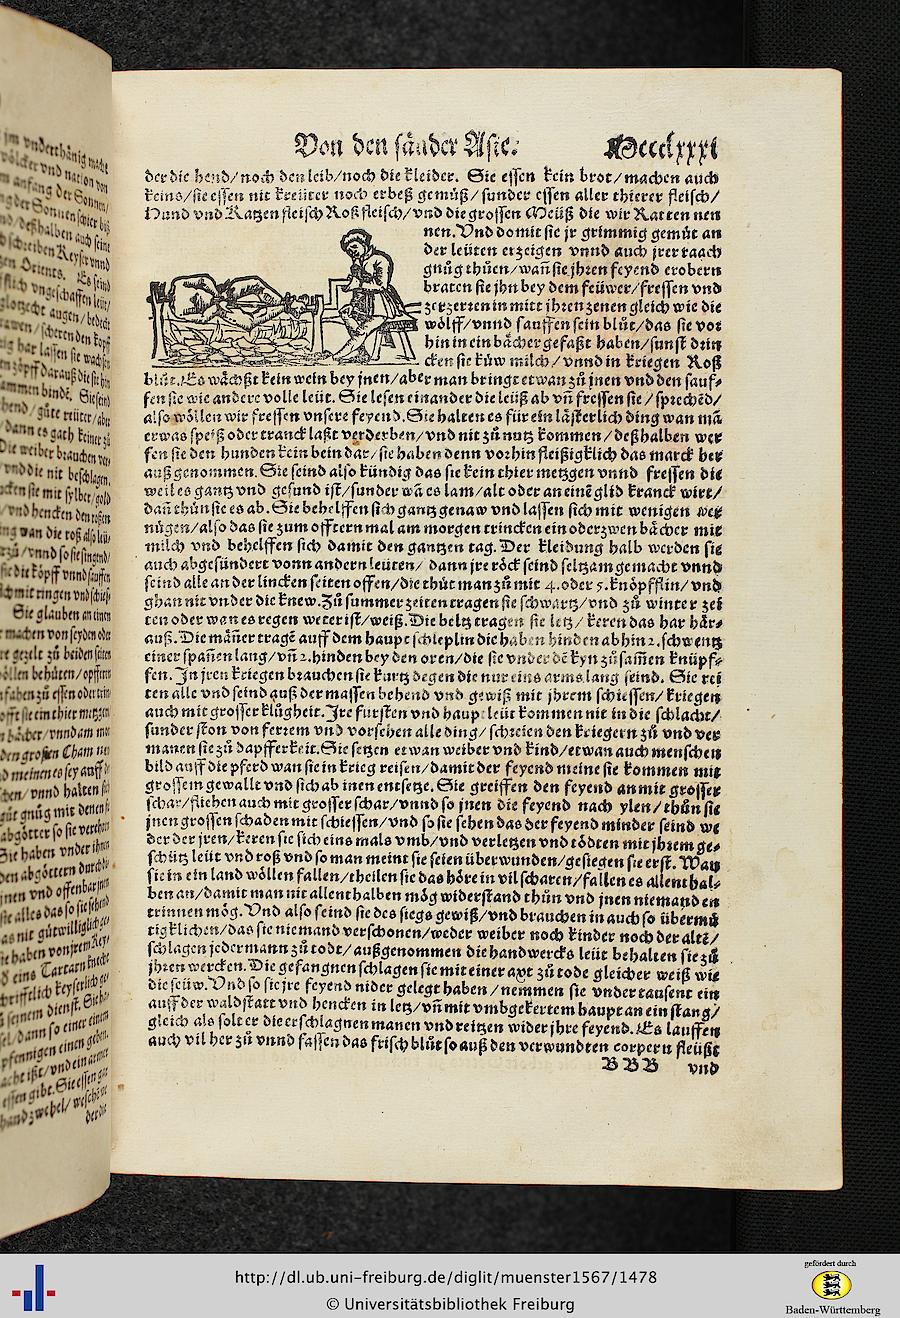 Von den länder Asie.
Mccclxxxi
der die hend/noch den leib/noch die kleider. Sie essen kein brot/machen auch
keins/sie essen nit kreüter noch erbeß gemüß/sunder essen aller thierer fleisch/
Hund vnd Katzen fleisch Roß fleisch/vnd die grossen Meüß die wir Ratten nen
nen. Vnd domit sie jr grimmig gemüt an
der leüten erzeigen vnnd auch jrer raach
gnůg thůen/wañ sie jhren feyend erobern
braten sie jhn bey dem feüwer/fressen vnd
zerzerren in mitt jhren zenen gleich wie die
wölff/vnnd sauffen sein blůt/das sie vor
hin in ein bächer gefaßt haben/sunst drin
cken sie küw milch/vnnd in kriegen Roß
blůt. Es wächßt kein wein bey jnen/aber man bringt etwan zů jnen vnd den sauf-
fen sie wie andere volle leüt. Sie lesen einander die leüß ab vñ fressen sie/sprechēd/
also wöllen wir fressen vnsere feyend. Sie halten es für ein lästerlich ding wan mā
etwas speiß oder tranck laßt verderben/vnd nit zů nutz kommen/deßhalben wer
fen sie den hunden kein bein dar/sie haben denn vorhin fleißigklich das marck her
auß genommen. Sie seind also kündig das sie kein thier metzgen vnnd fressen die
weil es gantz vnd gesund ist/sunder wā es lam/alt oder an einē glid kranck wirt/
dañ thůn sie es ab. Sie behelffen sich gantz genaw vnd lassen sich mit wenigen ver
nügen/also das sie zum offtern mal am morgen trincken ein oder zwen bächer mit
milch vnd behelffen sich damit den gantzen tag. Der kleidung halb werden sie
auch abgesündert vonn andern leüten/dann jre röck seind seltzam gemacht vnnd
seind alle an der lincken seiten offen/die thůt man zů mit 4. oder 5. knöpfflin/vnd
ghan nit vnder die knew. Zů summer zeiten tragen sie schwartz/vnd zů winter zei
ten oder wan es regen weter ist/weiß. Die beltz tragen sie letz/keren das har här-
auß. Die mäñer tragē auff dem haupt schleplin die haben hinden abhin 2. schwentz
einer spañen lang/vñ 2. hinden bey den oren/die sie vnder dē kyn zůsam̄en knüpf-
fen. Jn jren kriegen brauchen sie kurtz degen die nur eins arms lang seind. Sie rei
ten alle vnd seind auß der massen behend vnd gewiß mit jhrem schiessen/kriegen
auch mit grosser klůgheit. Jre fursten vnd haupt leüt kommen nit in die schlacht/
sunder ston von ferrem vnd vorsehen alle ding/schreien den kriegern zů vnd ver
manen sie zů dapfferkeit. Sie setzen etwan weiber vnd kind/etwan auch menschen
bild auff die pferd wan sie in krieg reisen/damit der feyend meine sie kommen mit
grossem gewallt vnd sich ab inen entsetze. Sie greiffen den feyend an mit grosser
schar/fliehen auch mit grosser schar/vnnd so jnen die feyend nach ylen/thůn sie
jnen grossen schaden mit schiessen/vnd so sie sehen das der feyend minder seind we
der der jren/keren sie sich eins mals vmb/vnd verletzen vnd tödten mit jhrem ge-
schütz leüt vnd roß vnd so man meint sie seien überwunden/gesiegen sie erst. Wan
sie in ein land wöllen fallen/theilen sie das höre in vil scharen/fallen es allenthal-
ben an/damit man nit allenthalben mög widerstand thůn vnd jnen niemand en
trinnen mög. Vnd also seind sie des siegs gewiß/vnd brauchen in auch so übermü
tigklichen/das sie niemand verschonen/weder weiber noch kinder noch der altē/
schlagen jederman zů todt/außgenommen die handwercks leüt behalten sie zů
jhren wercken. Die gefangnen schlagen sie mit einer axt zů tode gleicher weiß wie
die seüw. Vnd so sie jre feyend nider gelegt haben/nemmen sie vnder tausent ein
auff der waldstatt vnd hencken in letz/vñ mit vmbgekertem haupt an ein stang/
gleich als solt er die erschlagnen manen vnd reitzen wider jhre feyend. Es lauffen
auch vil her zů vnnd fassen das frisch blůt so auß den verwundten corpern fleüßt
BBB vnd
http://dl.ub.uni-freiburg.de/diglit/muenster1567/1478
© Universitätsbibliothek Freiburg
gefördert durch
Baden-Württemberg